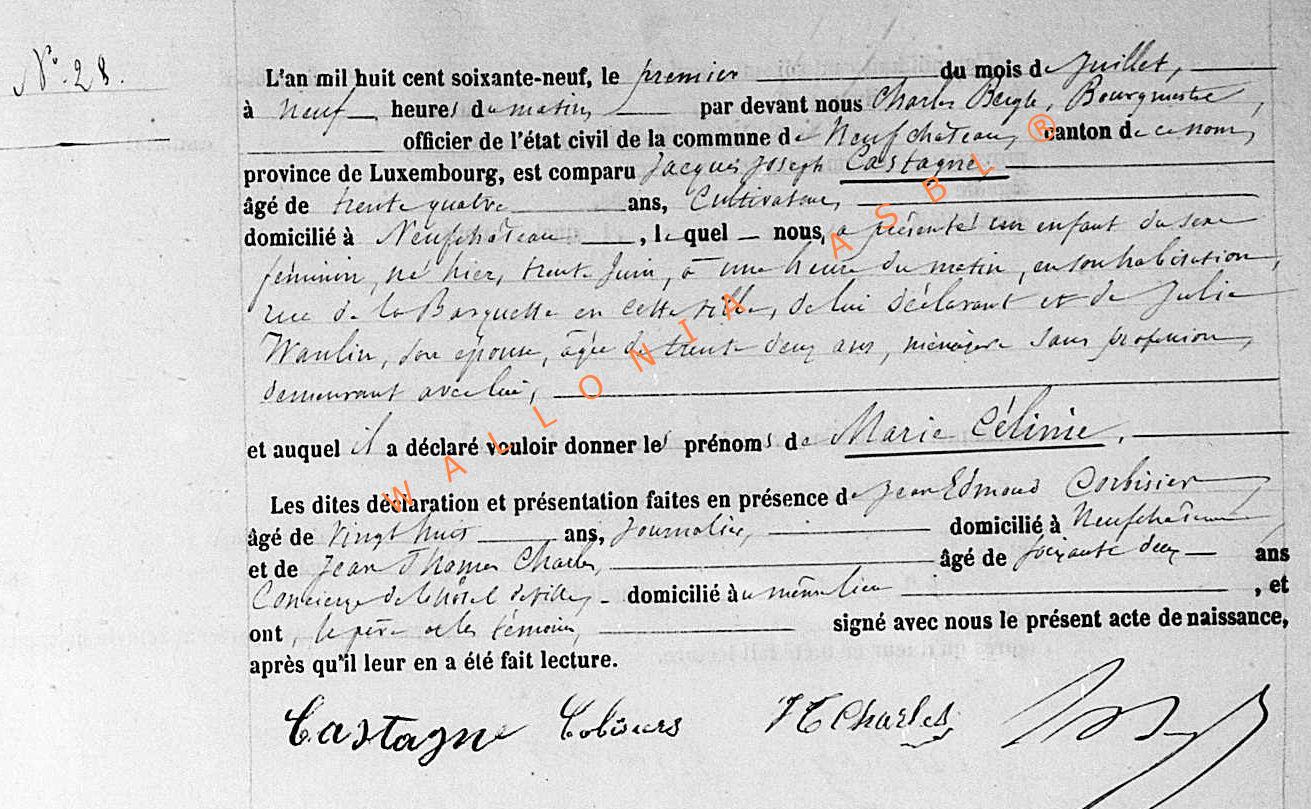 N°. 28.
L'an mil huit cent soixante-neuf, le premier du mois de Juillet,
à neuf heures du matin, par devant nous Charles Bergh, Bourgmestre,
officier de l'état civil de la commune de Neufchâteau, canton de ce nom,
province de Luxembourg, est comparu Jacques Joseph Castagne
âgé de trente quatre ans, Cultivateur,
domicilié à Neufchâteau, lequel nous, a présenté un enfant du sexe
féminin, né hier, trente Juin, à une heure du matin, en son habitation,
rue de la Barquette en cette ville, de lui déclarant et de Julie
Waulin, son épouse, âgée de trente deux ans, ménagère sans profession,
demeurant avec lui,
et auquel il a déclaré vouloir donner les prénoms de Marie Célinie.
Les dites déclaration et présentation faites en présence de Jean Edmond Corbisier
âgé de vingt huit ans, Journalier, domicilié à Neufchâteau,
et de Jean Thomas Charles, âgé de soixante deux ans
Concierge de l'hôtel de ville, domicilié au même lieu, et
ont, le père et les témoins, signé avec nous le présent acte de naissance,
après qu'il leur en a été fait lecture.
Castagne JT Charles
WALLONIA ASBL ®